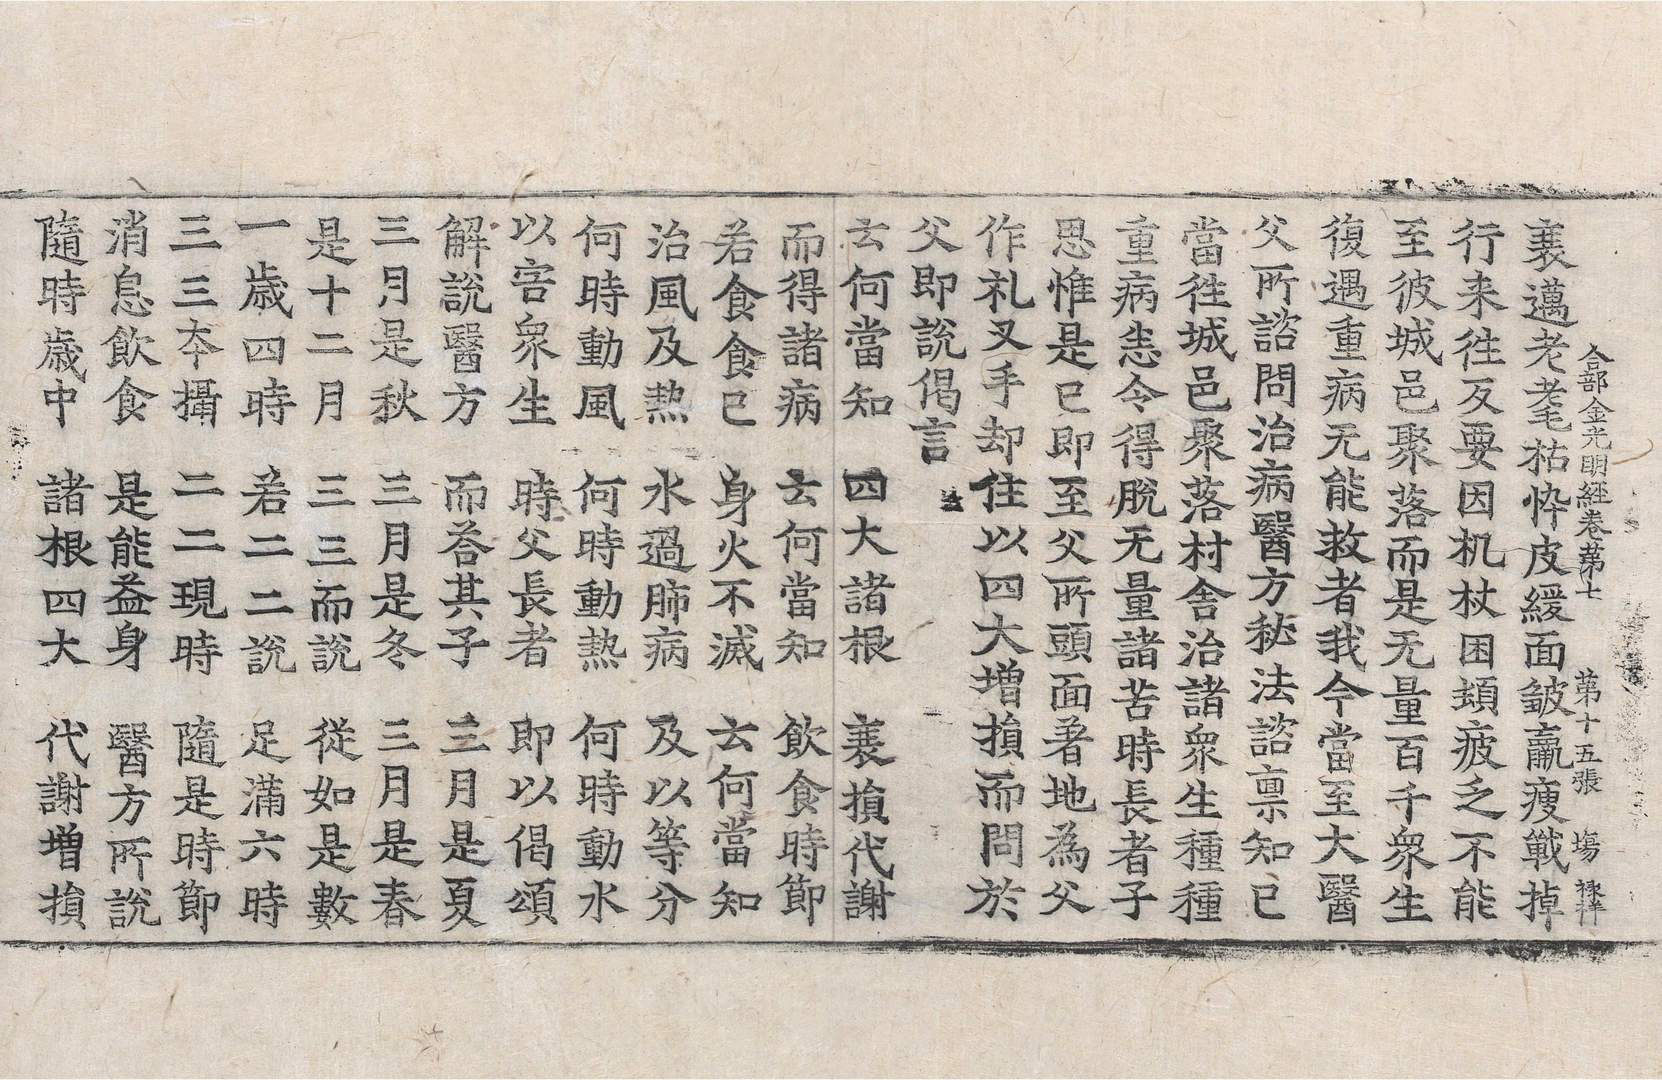 合部金光明經卷苐七 苐十五張 塲 祿祥
襄邁老耄枯忰皮緩面皺羸瘦戰掉
行来往反要因机杖困頓疲乏不能
至彼城邑聚落而是无量百千衆生
復遇重病无能救者我今當至大醫
父所諮問治病醫方秘法諮禀知已
當往城邑聚落村舍治諸衆生種種
重病悉令得脫无量諸苦時長者子
思惟是已即至父所頭面著地為父
作礼叉手却住以四大增損而問於
父即說偈言
云何當知 四大諸根 衰損代謝
而得諸病 云何當知 飲食時節
若食食已 身火不滅 云何當知
治風及熱 水過肺病 及以等分
何時動風 何時動熱 何時動水
以害衆生 時父長者 即以偈頌
解說醫方 而荅其子 三月是夏
三月是秋 三月是冬 三月是春
是十二月 三三而說 從如是數
一歲四時 若二二說 足滿六時
三三夲攝 二二現時 隨是時節
消息飲食 是能益身 醫方所說
隨時歲中 諸根四大 代謝增損